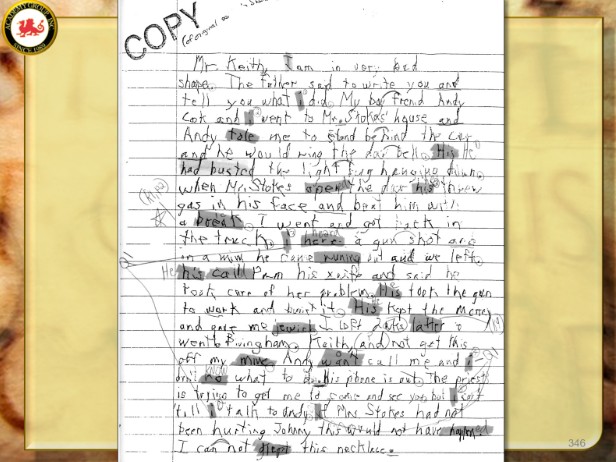 ACADEMY GROUP, INC.
SINCE 1989
COPY
of original
Mr. Keith, I am in very bad
shape. The father said to write you and
tell you what I did. My boy friend Andy
Cok and I went to Mr. Stokes' house and
Andy tole me to stand behind the car
and he would ring the dor bell. His He
had busted the light hanging down
when Mr. Stokes open the dor his threw
gas in his face and beat him with
a I went and got back in
the truck. I heard here a gun shot and
in a min he came runing out and we left.
He his call Pam his xwife and said he
Took care of her problem. His took the gun
to work and it. His Kept the money
and gave me I left later latter &
went Bingham. Keith, I can not get this
off my mine. Andy want call me and I
dont no know what to do. his phone is out. The priest
is trying to get me to come and see you but I cant
till I talk to Andy. If Mr. Stokes had not
been hurting Johnny this would not have happened
I can not this necklace.
346